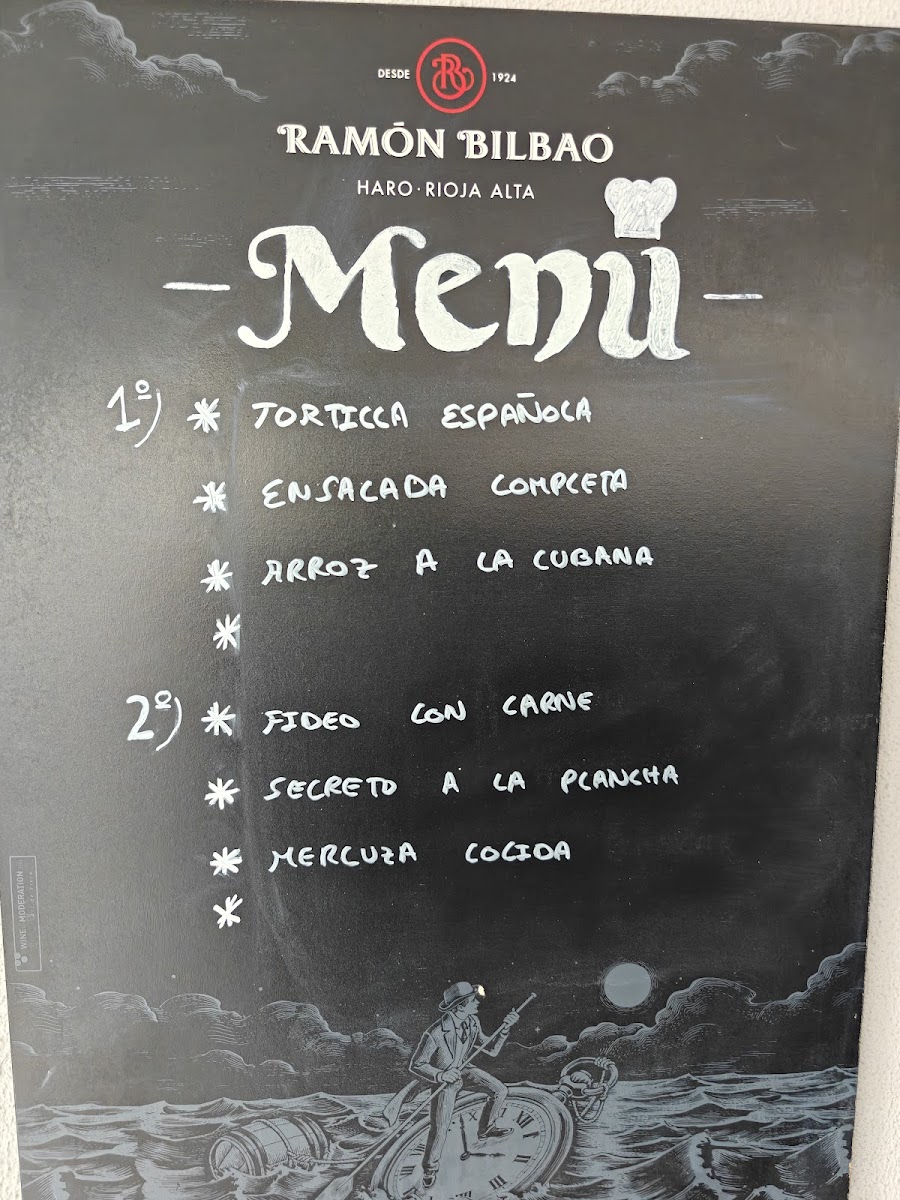 DESDE 1924
RAMÓN BILBAO
HARO · RIOJA ALTA
Menú
1º) * TORTILLA ESPAÑOLA
* ENSALADA COMPLETA
* ARROZ A LA CUBANA
*
2º) * FIDEO CON CARNE
* SECRETO A LA PLANCHA
* MERLUZA COCIDA
*
WINE MODERATION